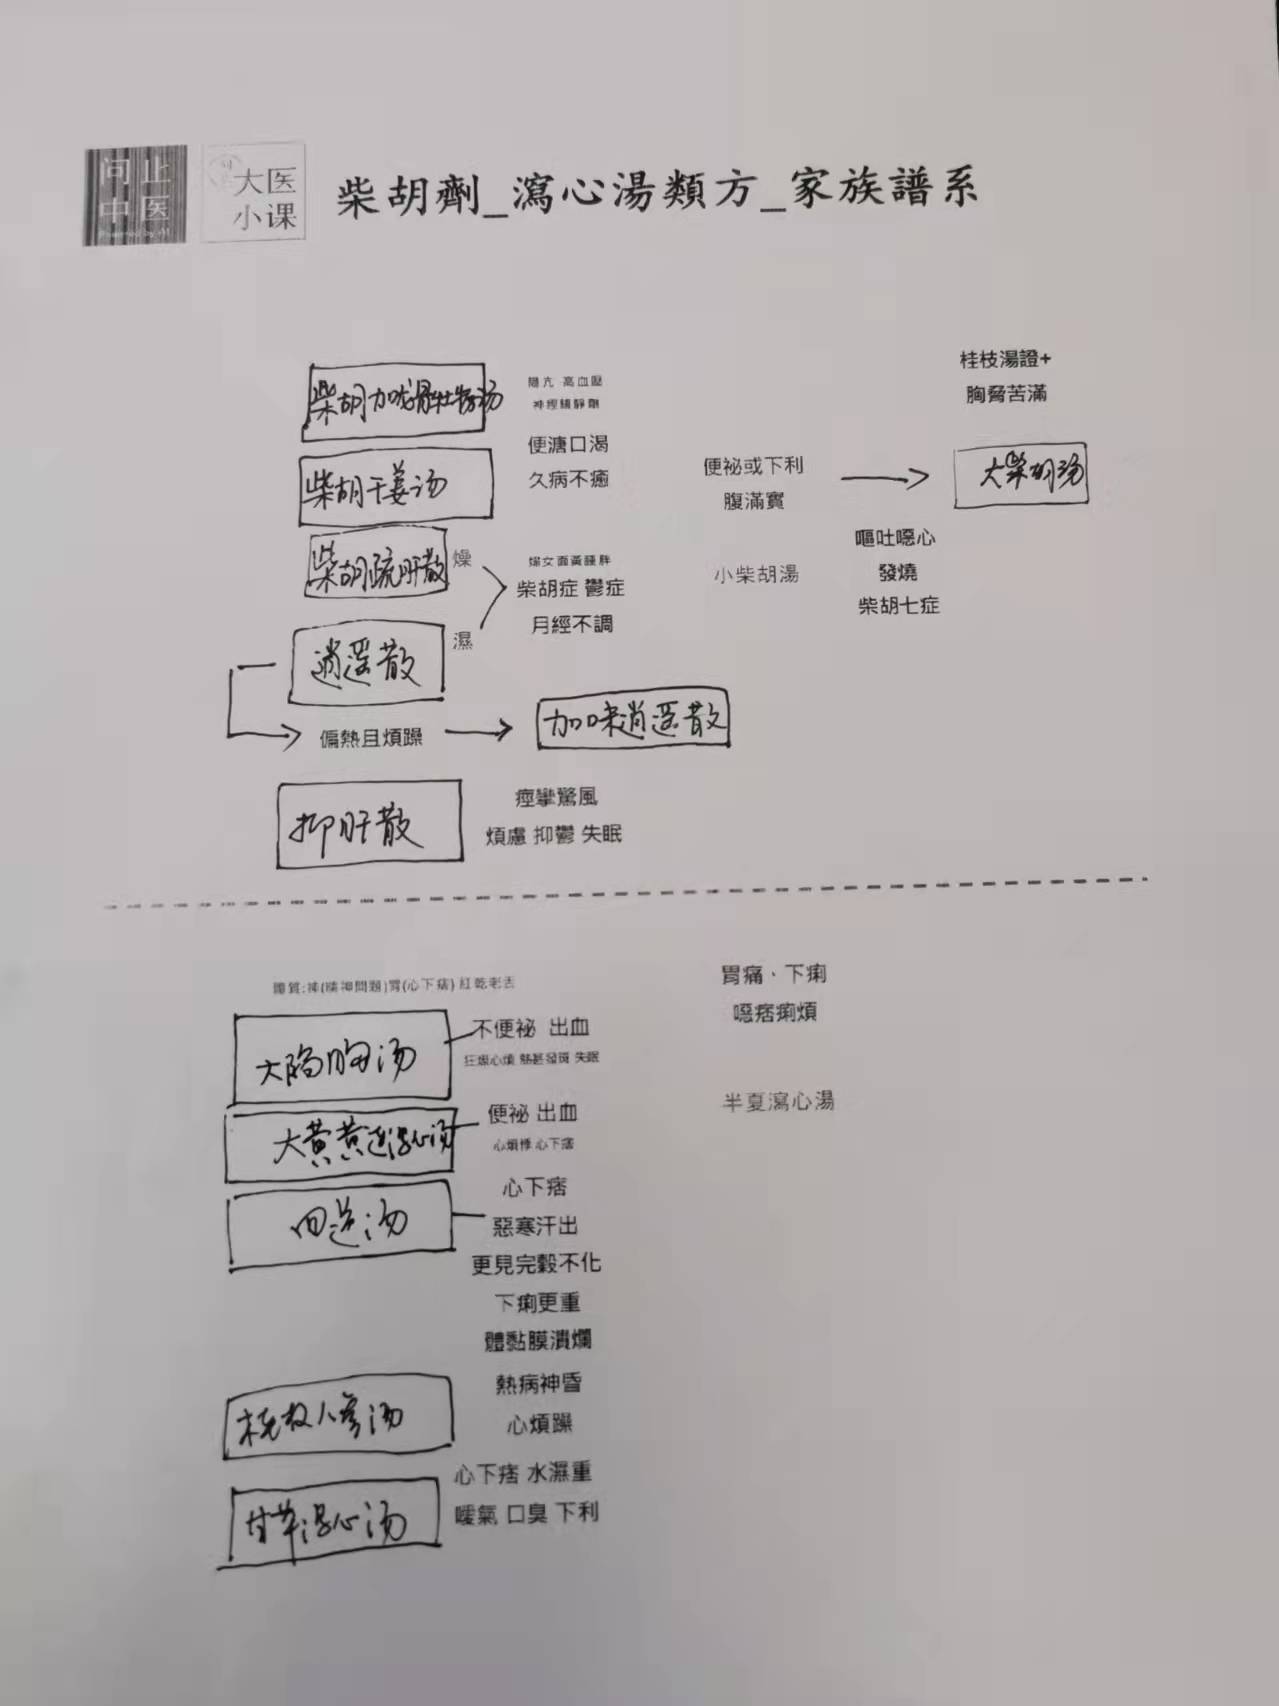 问止
中医
Powered by AI
大医
小课
柴胡劑_瀉心湯類方_家族譜系
柴胡加龙骨牡蛎汤
陽亢 高血壓
神經鎮靜劑
桂枝湯證+
胸脅苦滿
柴胡干姜汤
便溏口渴
久病不癒
便祕或下利
腹滿實
大柴胡汤
柴胡疏肝散
燥
婦女面黃腫胖
柴胡症 鬱症
月經不調
小柴胡湯
嘔吐噁心
發燒
柴胡七症
逍遥散
濕
偏熱且煩躁
加味逍遥散
抑肝散
痙攣驚風
煩慮 抑鬱 失眠
體質:神(精神問題)胃(心下痞) 紅乾老舌
胃痛、下痢
噁痞痢煩
大陷胸汤
不便祕 出血
狂燥心煩 熱甚發斑 失眠
半夏瀉心湯
大黄黄连泻心汤
便祕 出血
心煩悸 心下痞
四逆汤
心下痞
惡寒汗出
更見完穀不化
下痢更重
體黏膜潰爛
熱病神昏
心煩躁
人参汤
甘草泻心汤
心下痞 水濕重
噯氣 口臭 下利